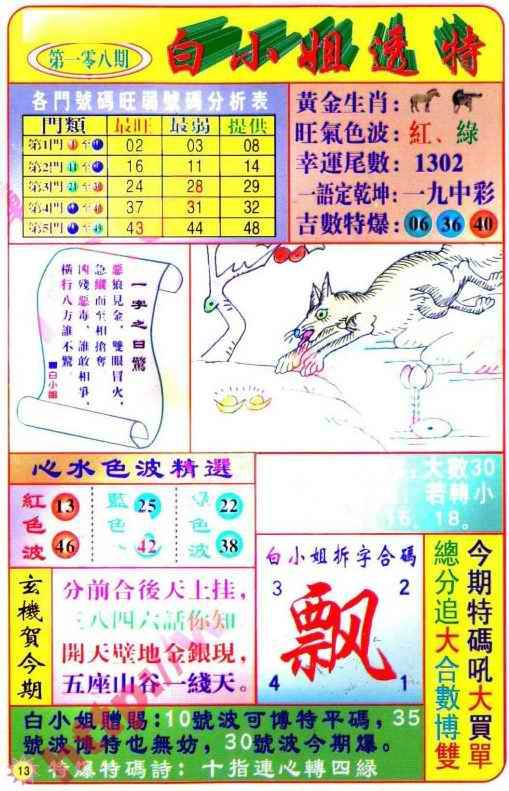 第一零八期
白小姐透特
各門號碼旺弱號碼分析表
門類 最旺 最弱 提供
第1門 至 02 03 08
第2門 至 16 11 14
第3門 至 24 28 29
第4門 至 37 31 32
第5門 至 43 44 48
黃金生肖:
旺氣色波:紅、綠
幸運尾數:1302
一語定乾坤:一九中彩
吉數特爆:06 36 40
一字之曰驚
惡狼見金,雙眼冒火,
急縱而至相搶奪
凶殘惡毒,誰敢相爭,
橫行八方誰不驚。
■白小姐
心水色波精選
紅色波 13 46
藍色 25 42
綠色波 22 38
:大數30
若轉小
15,18。
玄機賀今期
分前合後天上挂,
三八四六話你知
開天壁地金銀現,
五座山谷一綫天。
白小姐拆字合碼
3 2
飘
4 1
今期特碼吼大買單
總分追大合數博雙
白小姐贈賜:10號波可博特平碼,35
號波博特也無妨,30號波今期爆。
13
特爆特碼詩:十指連心轉四緑